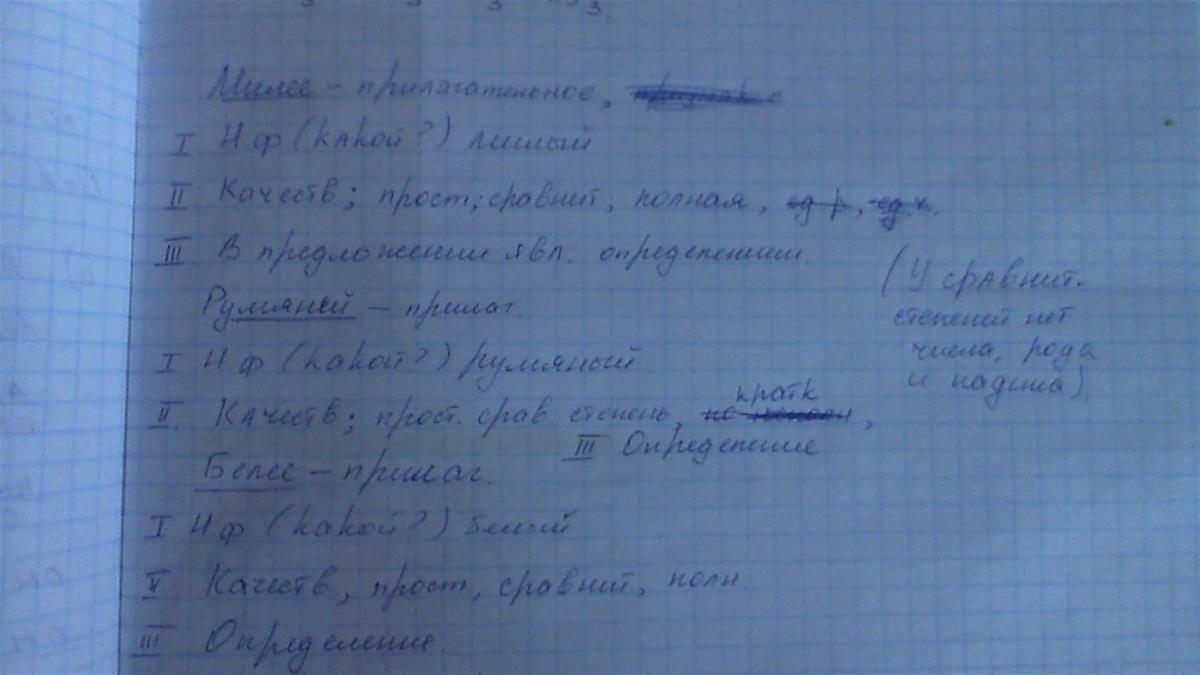 Милее – прилагательное,
I Н.ф (какой?) милый
II Качеств; прост; сравнит, полная, ед р, ед.ч.
III В предложении явл. определением.
(У сравнит.
степеней нет
числа, рода
и падежа)
Румяней – прилаг.
I Н.ф (какой?) румяный
II. Качеств; прост. срав. степень, кратк,
III Определение
Белее – прилаг.
I Н.ф (какой?) белый
II Качеств, прост, сравнит, полн.
III Определение.